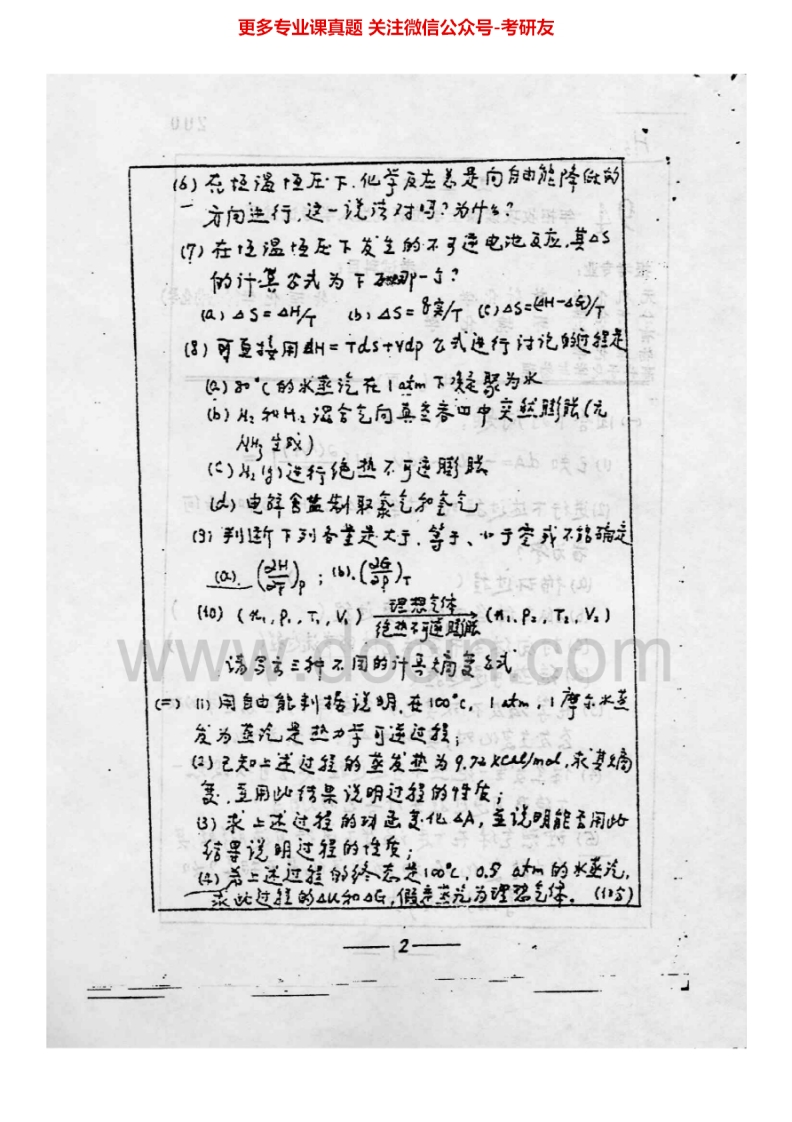 更多专业课真题 关注微信公众号-考研友
(6) 在恒温恒压下,化学反应总是向自由能降低的
方向进行,这一说法对吗?为什么?
(7) 在恒温恒压下发生的不可逆电池反应,其ΔS
的计算公式为下列哪一个?
(a) ΔS=ΔH/T (b) ΔS=q实/T (c) ΔS=(ΔH-ΔG)/T
(8) 可直接用dH=Tds+Vdp公式进行讨论的过程是
(a) 80°C的水蒸汽在1atm下凝聚为水
(b) N₂和H₂混合气向真空容四中突然膨胀(无
NH₃生成)
(c) H₂(g)进行绝热不可逆膨胀
(d) 电解食盐制取氯气和氢气
(9) 判断下列各量是大于、等于、小于零或不能确定
(a). (∂H/∂T)p ; (b). (∂G/∂p)T
(10) (n₁, P₁, T₁, V₁) 理想气体 绝热不可逆膨胀 (n₁, P₂, T₂, V₂)
请写出三种不同的计算熵变公式
www.docin.com
(二) (1) 用自由能判据说明,在100°C, 1 atm, 1摩尔水蒸
发为蒸汽是热力学可逆过程;
(2) 已知上述过程的蒸发热为9.72 kcal/mol,求其熵
变,並用此结果说明过程的性质;
(3) 求上述过程的功函变化ΔA,並说明能否用此
结果说明过程的性质;
(4) 若上述过程的终态是100°C, 0.5 atm的水蒸汽,
求此过程的ΔU和ΔG,假定蒸汽为理想气体. (10分)
2